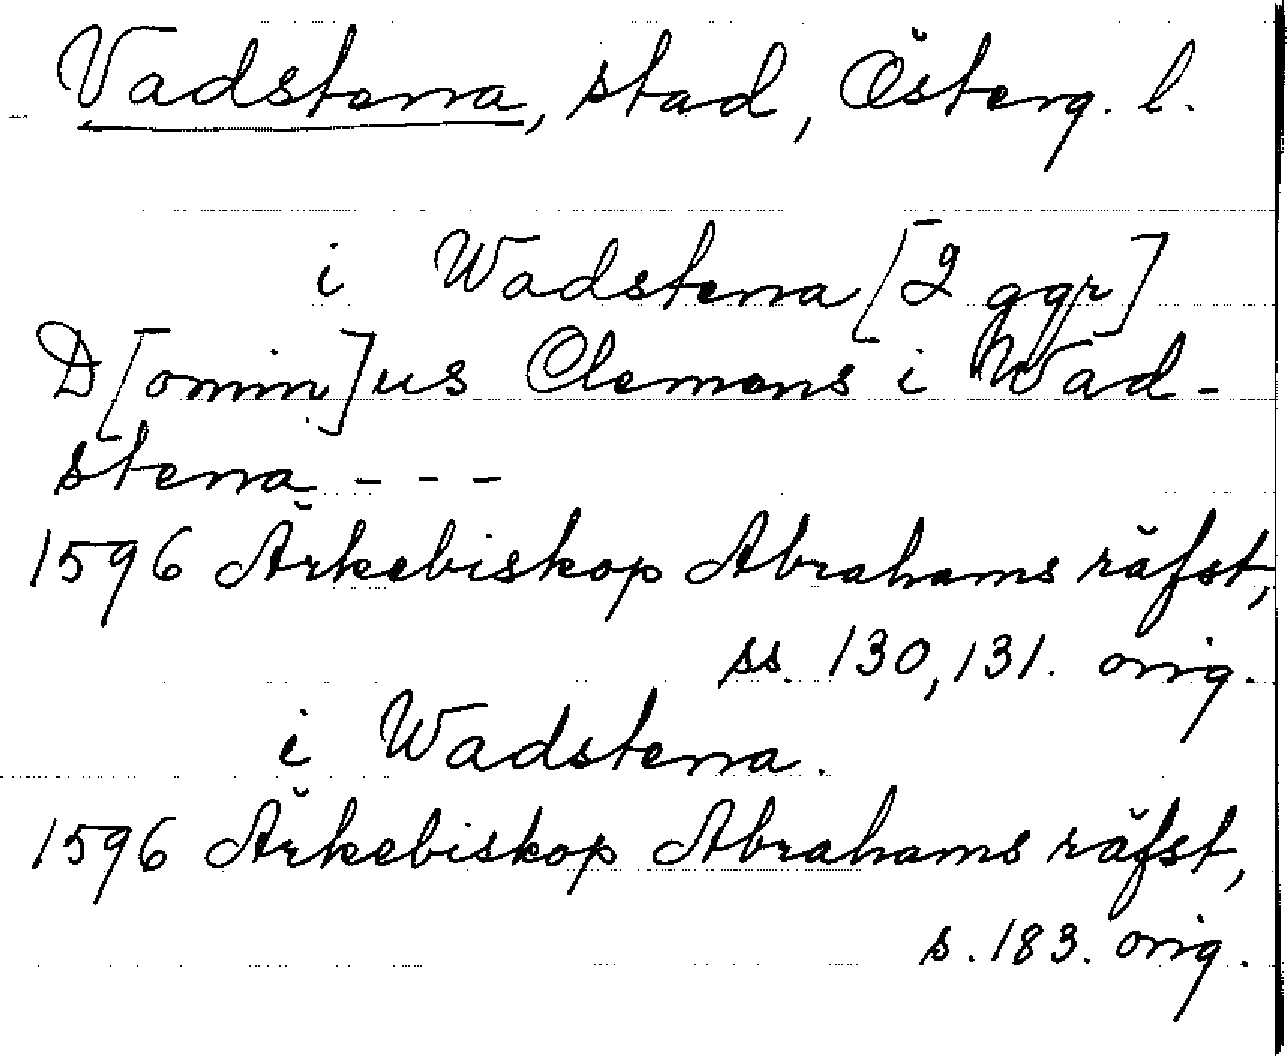 Vadstena, stad, Österg. l.
i Wadstena [2 ggr]
D[omin]us Clemens i Wad-
stena - - -
1596 Ärkebiskop Abrahams räfst,
ss. 130, 131. orig.
i Wadstena.
1596 Ärkebiskop Abrahams räfst,
s. 183. orig.